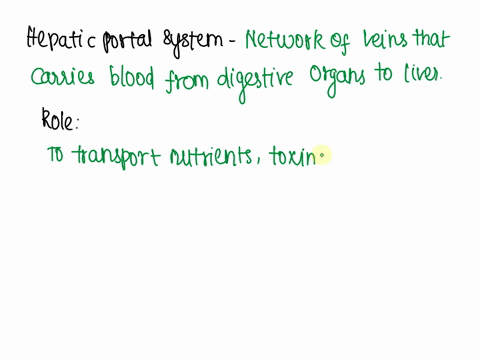 Hepatic portal System - Network of veins that
carries blood from digestive organs to liver.
Role:
To transport nutrients, toxin